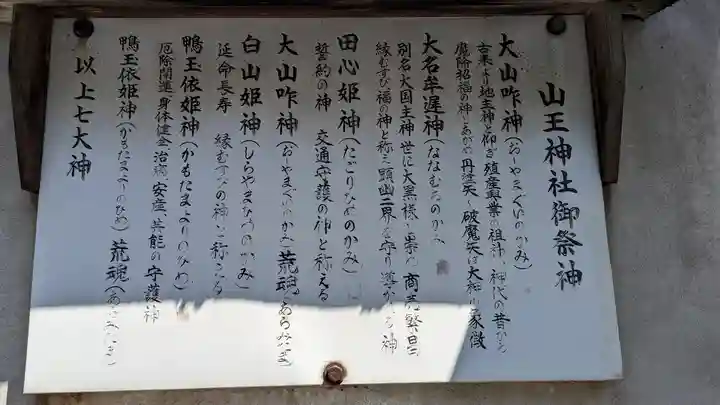 山王神社御祭神
大山咋神(おゝやまぐいのかみ)
古来より地主神と仰ぎ殖産興業の祖神 神代の昔から
魔除招福の神とあがめ 丹塗矢 破魔矢は大神の象徴
大名牟遅神(おなむちのかみ)
別名大国主神 世に大黒様と 商売繁昌
縁むすび 福の神と称え 顕幽二界を守り導かれる神
田心姫神(たごりひめのかみ)
誓約の神 交通守護の神と称える
大山咋神(おゝやまぐいのかみ)荒魂(あらみたま)
白山姫神(しらやまひめのかみ)
延命長寿 縁むすびの神と称える
鴨玉依姫神(かもたまよりのひめ)
厄除開運 身体健全 治病 安産 芸能の守護神
鴨玉依姫神(かもたまよりのひめ)荒魂(あらみたま)
以上七大神